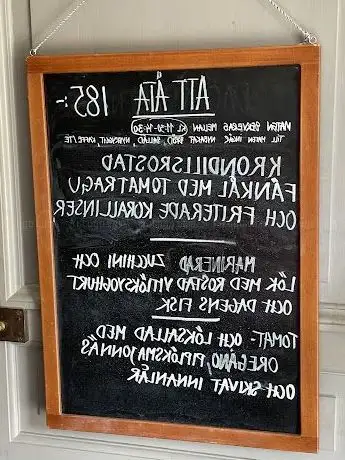 ATT ÄTA 185:-
MATEN SERVERAS MELLAN KL. 11:30-14:30
TILL MATEN INGÅR NYBAKAT BRÖD, SALLAD, NYBRYGGT KAFFE/TE
KRONDILLSROSTAD
FÄNKÅL MED TOMATRAGU
OCH FRITERADE KORALLINSER
MARINERAD ZUCCHINI OCH
LÖK MED ROSTAD VITLÖKSYOGHURT
OCH DAGENS FISK
TOMAT- OCH LÖKSALLAD MED
OREGANO, PIPLÖKSMAJONNÄS
OCH SKIVAT INNANLÅR